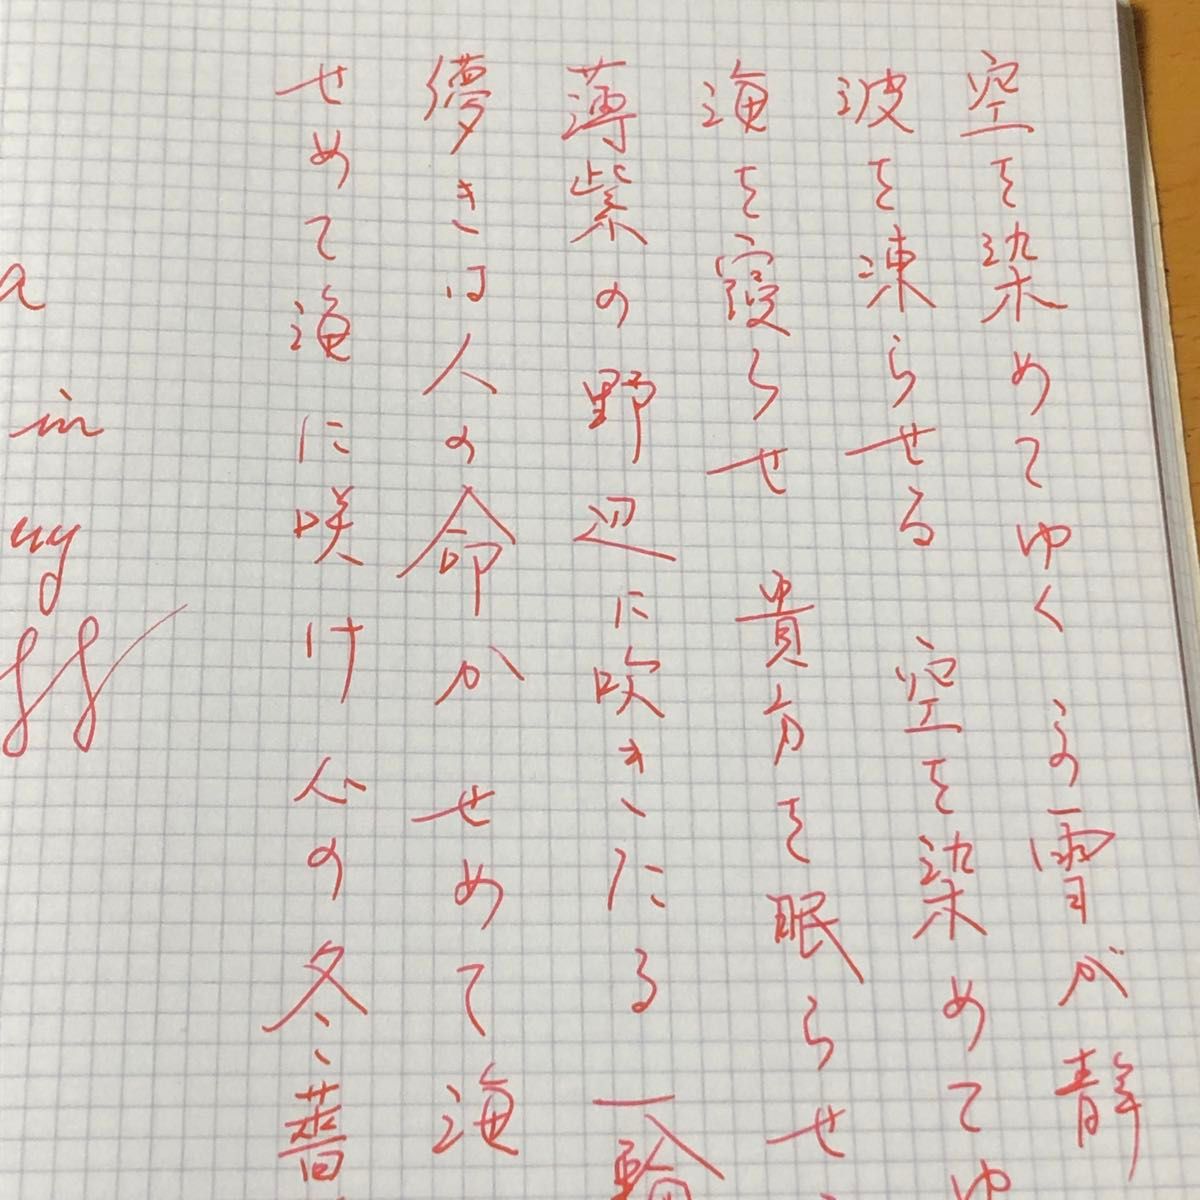 空を染めてゆく この雪が静
波を凍らせる 空を染めてゆ
海を寝らせ 貴方を眠らせ
薄紫の野辺に吹きたる 一輪
儚きは人の命か せめて海
せめて海に咲け 心の冬薔
a
in